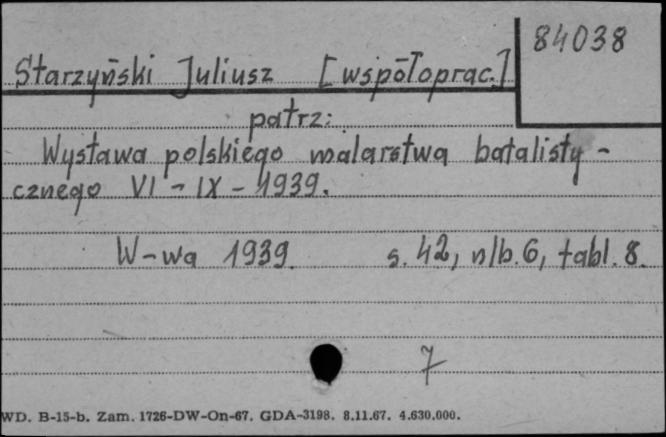 84038
Starzyński Juliusz [współoprac.]
patrz:
Wystawa polskiego malarstwa batalisty-
cznego VI - IX - 1939.
W-wa 1939. s. 42, nlb. 6, tabl. 8.
7
WD. B-15-b. Zam. 1726-DW-On-67. GDA-3198. 8.11.67. 4.630.000.